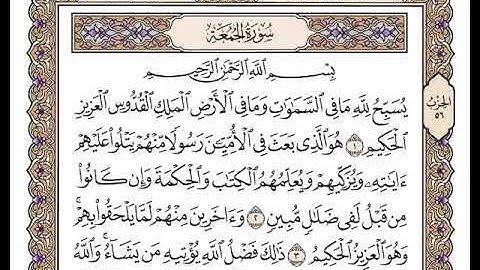 سُورَةُ الجُمُعَةِ
بِسْمِ ٱللَّهِ ٱلرَّحْمَٰنِ ٱلرَّحِيمِ
يُسَبِّحُ لِلَّهِ مَا فِي ٱلسَّمَٰوَٰتِ وَمَا فِي ٱلْأَرْضِ ٱلْمَلِكِ ٱلْقُدُّوسِ ٱلْعَزِيزِ
ٱلْحَكِيمِ ١ هُوَ ٱلَّذِي بَعَثَ فِي ٱلْأُمِّيِّـۧنَ رَسُولًا مِّنْهُمْ يَتْلُوا۟ عَلَيْهِمْ
ءَايَٰتِهِۦ وَيُزَكِّيهِمْ وَيُعَلِّمُهُمُ ٱلْكِتَٰبَ وَٱلْحِكْمَةَ وَإِن كَانُوا۟
مِن قَبْلُ لَفِي ضَلَٰلٍ مُّبِينٍ ٢ وَءَاخَرِينَ مِنْهُمْ لَمَّا يَلْحَقُوا۟ بِهِمْ ۚ
وَهُوَ ٱلْعَزِيزُ ٱلْحَكِيمُ ٣ ذَٰلِكَ فَضْلُ ٱللَّهِ يُؤْتِيهِ مَن يَشَآءُ ۚ وَٱللَّهُ
الحِزْبُ
٥٦